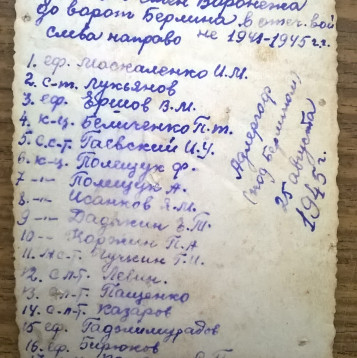 стен Воронежа
до ворот Берлина в отеч. вой
слева направо не 1941-1945 г.г.
1. еф. Москаленко И.М.
2. с-т. Лукьянов
3. еф. Ершов В.М.
4. к-ц. Беличенко П.т.
5. с.с-т. Гаевский И.У.
6. к-ц. Полещук Ф.
7 -"- Полещук А.
8 -"- Исанков
9 -"- Дадыкин
10 -"- Коржин П.А
11. Пучкин
12. с л-т. Левин.
13. л-т. Пащенко
14. с-т. Казаров
15 еф. Гадьимурадов
16. еф. Бирюков
Адлергоф
(под Берлином)
25 августа
1945 г.